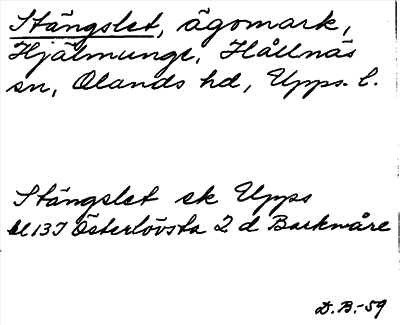 Stängslet, ägomark,
Hjälmunge, Hållnäs
sn, Olands hd, Upps. l.
Stängslet ek Upps
bl 13I Österlövsta 2 d Barknåre
D.B.-59